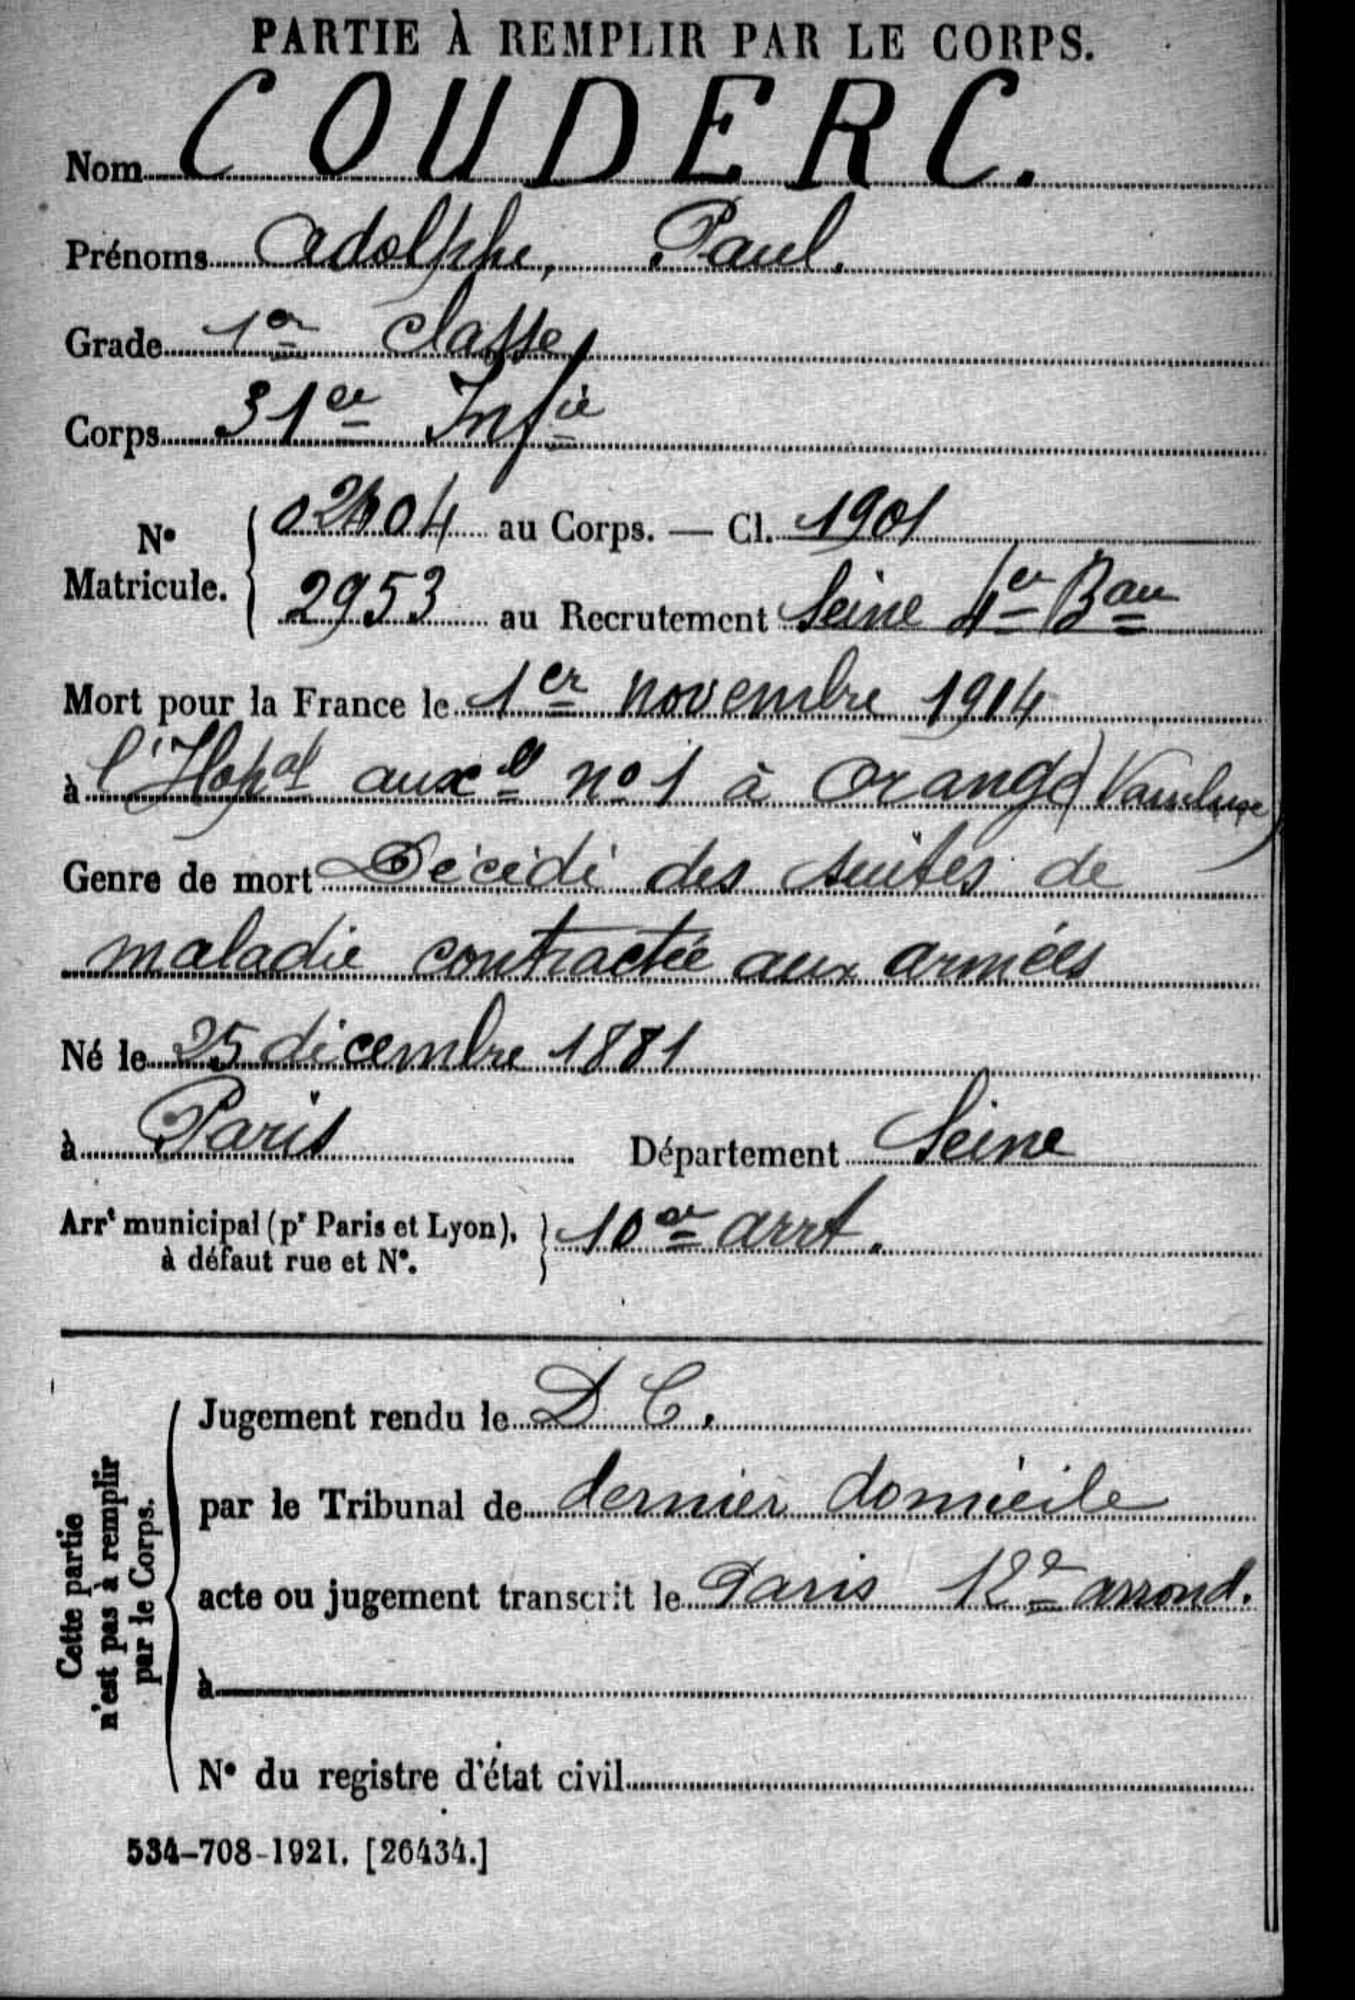 PARTIE À REMPLIR PAR LE CORPS.
Nom COUDERC.
Prénoms Adolphe, Paul.
Grade 1er classe
Corps 31er Infie
No Matricule. au Corps. — Cl. 1901
2953 au Recrutement Seine 4er Bau
Mort pour la France le 1er novembre 1914
à l'Hopal auxel no 1 à Orange (Vaucluse)
Genre de mort Décédé des suites de
maladie contractée aux armées
Né le 25 décembre 1881
à Paris Département Seine
Arrt municipal (pr Paris et Lyon), à défaut rue et No. 10er arrt.
Cette partie n'est pas à remplir par le Corps.
Jugement rendu le D C.
par le Tribunal de dernier domicile
acte ou jugement transcrit le Paris 12e arrond.
à
No du registre d'état civil
534-708-1921. [26434.]